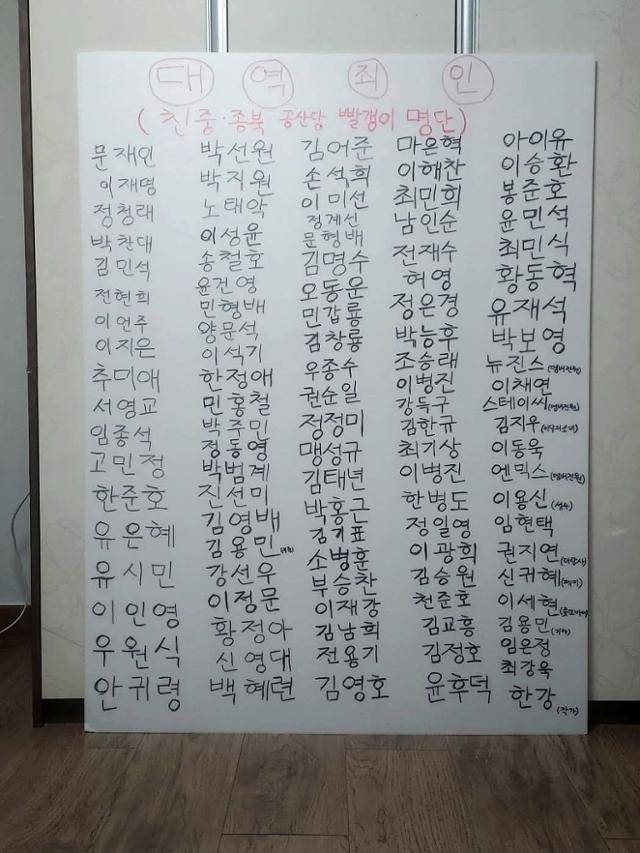 대 역 죄 인
( 친중·종북 공산당 빨갱이 명단)
문재인
이재명
정청래
박찬대
김민석
전현희
이언주
이지은
추미애
서영교
임종석
고민정
한준호
유은혜
유시민
이인영
우원식
안귀령
박선원
박지원
노태악
이성윤
송철호
윤건영
민형배
양문석
이석기
한정애
민홍철
박주민
정동영
박범계
진선미
김영배
김용민
강선우
이정문
황정아
신영대
백혜련
김어준
손석희
이미선
정계선
문형배
김명수
오동운
민갑룡
김창룡
우종수
권순일
정정미
맹성규
김태년
박홍근
김기표
소병훈
부승찬
이재강
김남희
전용기
김영호
마은혁
이해찬
최민희
남인순
전재수
허영
정은경
박능후
조승래
이병진
강득구
김한규
최기상
이병진
한병도
정일영
이광희
김승원
천준호
김교흥
김정호
윤후덕
아이유
이승환
봉준호
윤민석
최민식
황동혁
유재석
박보영
뉴진스(멤버전원)
이채연
스테이씨(멤버전원)
김지우
이동욱
엔믹스(멤버전원)
이용신(성우)
임현택
권지연
신귀혜
이세현
김용민
임은정
최강욱
한강(작가)